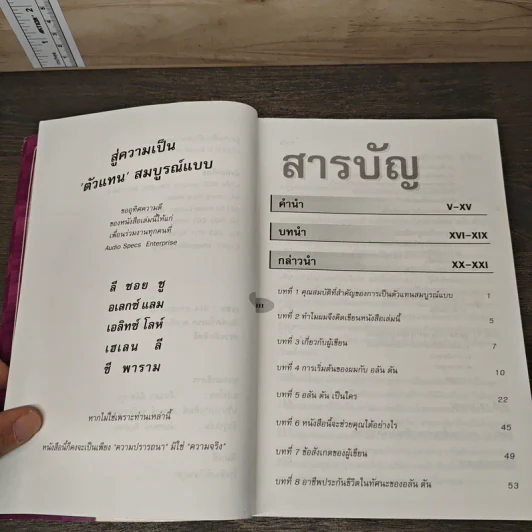 สู่ความเป็น
'ตัวแทน' สมบูรณ์แบบ
ขออุทิศความดี
ของหนังสือเล่มนี้ให้แก่
เพื่อนร่วมงานทุกคนที่
Audio Specs Enterprise
ลี ชอย ชู
อเลกซ์ แลม
เอลิทซ์ โลห์
เฮเลน ลี
ซี พาราม
หากไม่ใช่เพราะท่านเหล่านี้
หนังสือนี้ก็คงจะเป็นเพียง "ความปรารถนา" มิใช่ "ความจริง"
สารบัญ
คำนำ V-XV
บทนำ XVI-XIX
กล่าวนำ XX-XXI
III
บทที่ 1 คุณสมบัติที่สำคัญของการเป็นตัวแทนสมบูรณ์แบบ 1
บทที่ 2 ทำไมผมจึงคิดเขียนหนังสือเล่มนี้ 5
บทที่ 3 เกี่ยวกับผู้เขียน 7
บทที่ 4 การเริ่มต้นของผมกับ อลัน ตัน 10
บทที่ 5 อลัน ตัน เป็นใคร 22
บทที่ 6 หนังสือนี้จะช่วยคุณได้อย่างไร 45
บทที่ 7 ข้อสังเกตของผู้เขียน 49
บทที่ 8 อาชีพประกันชีวิตในทัศนะของอลัน ตัน 53